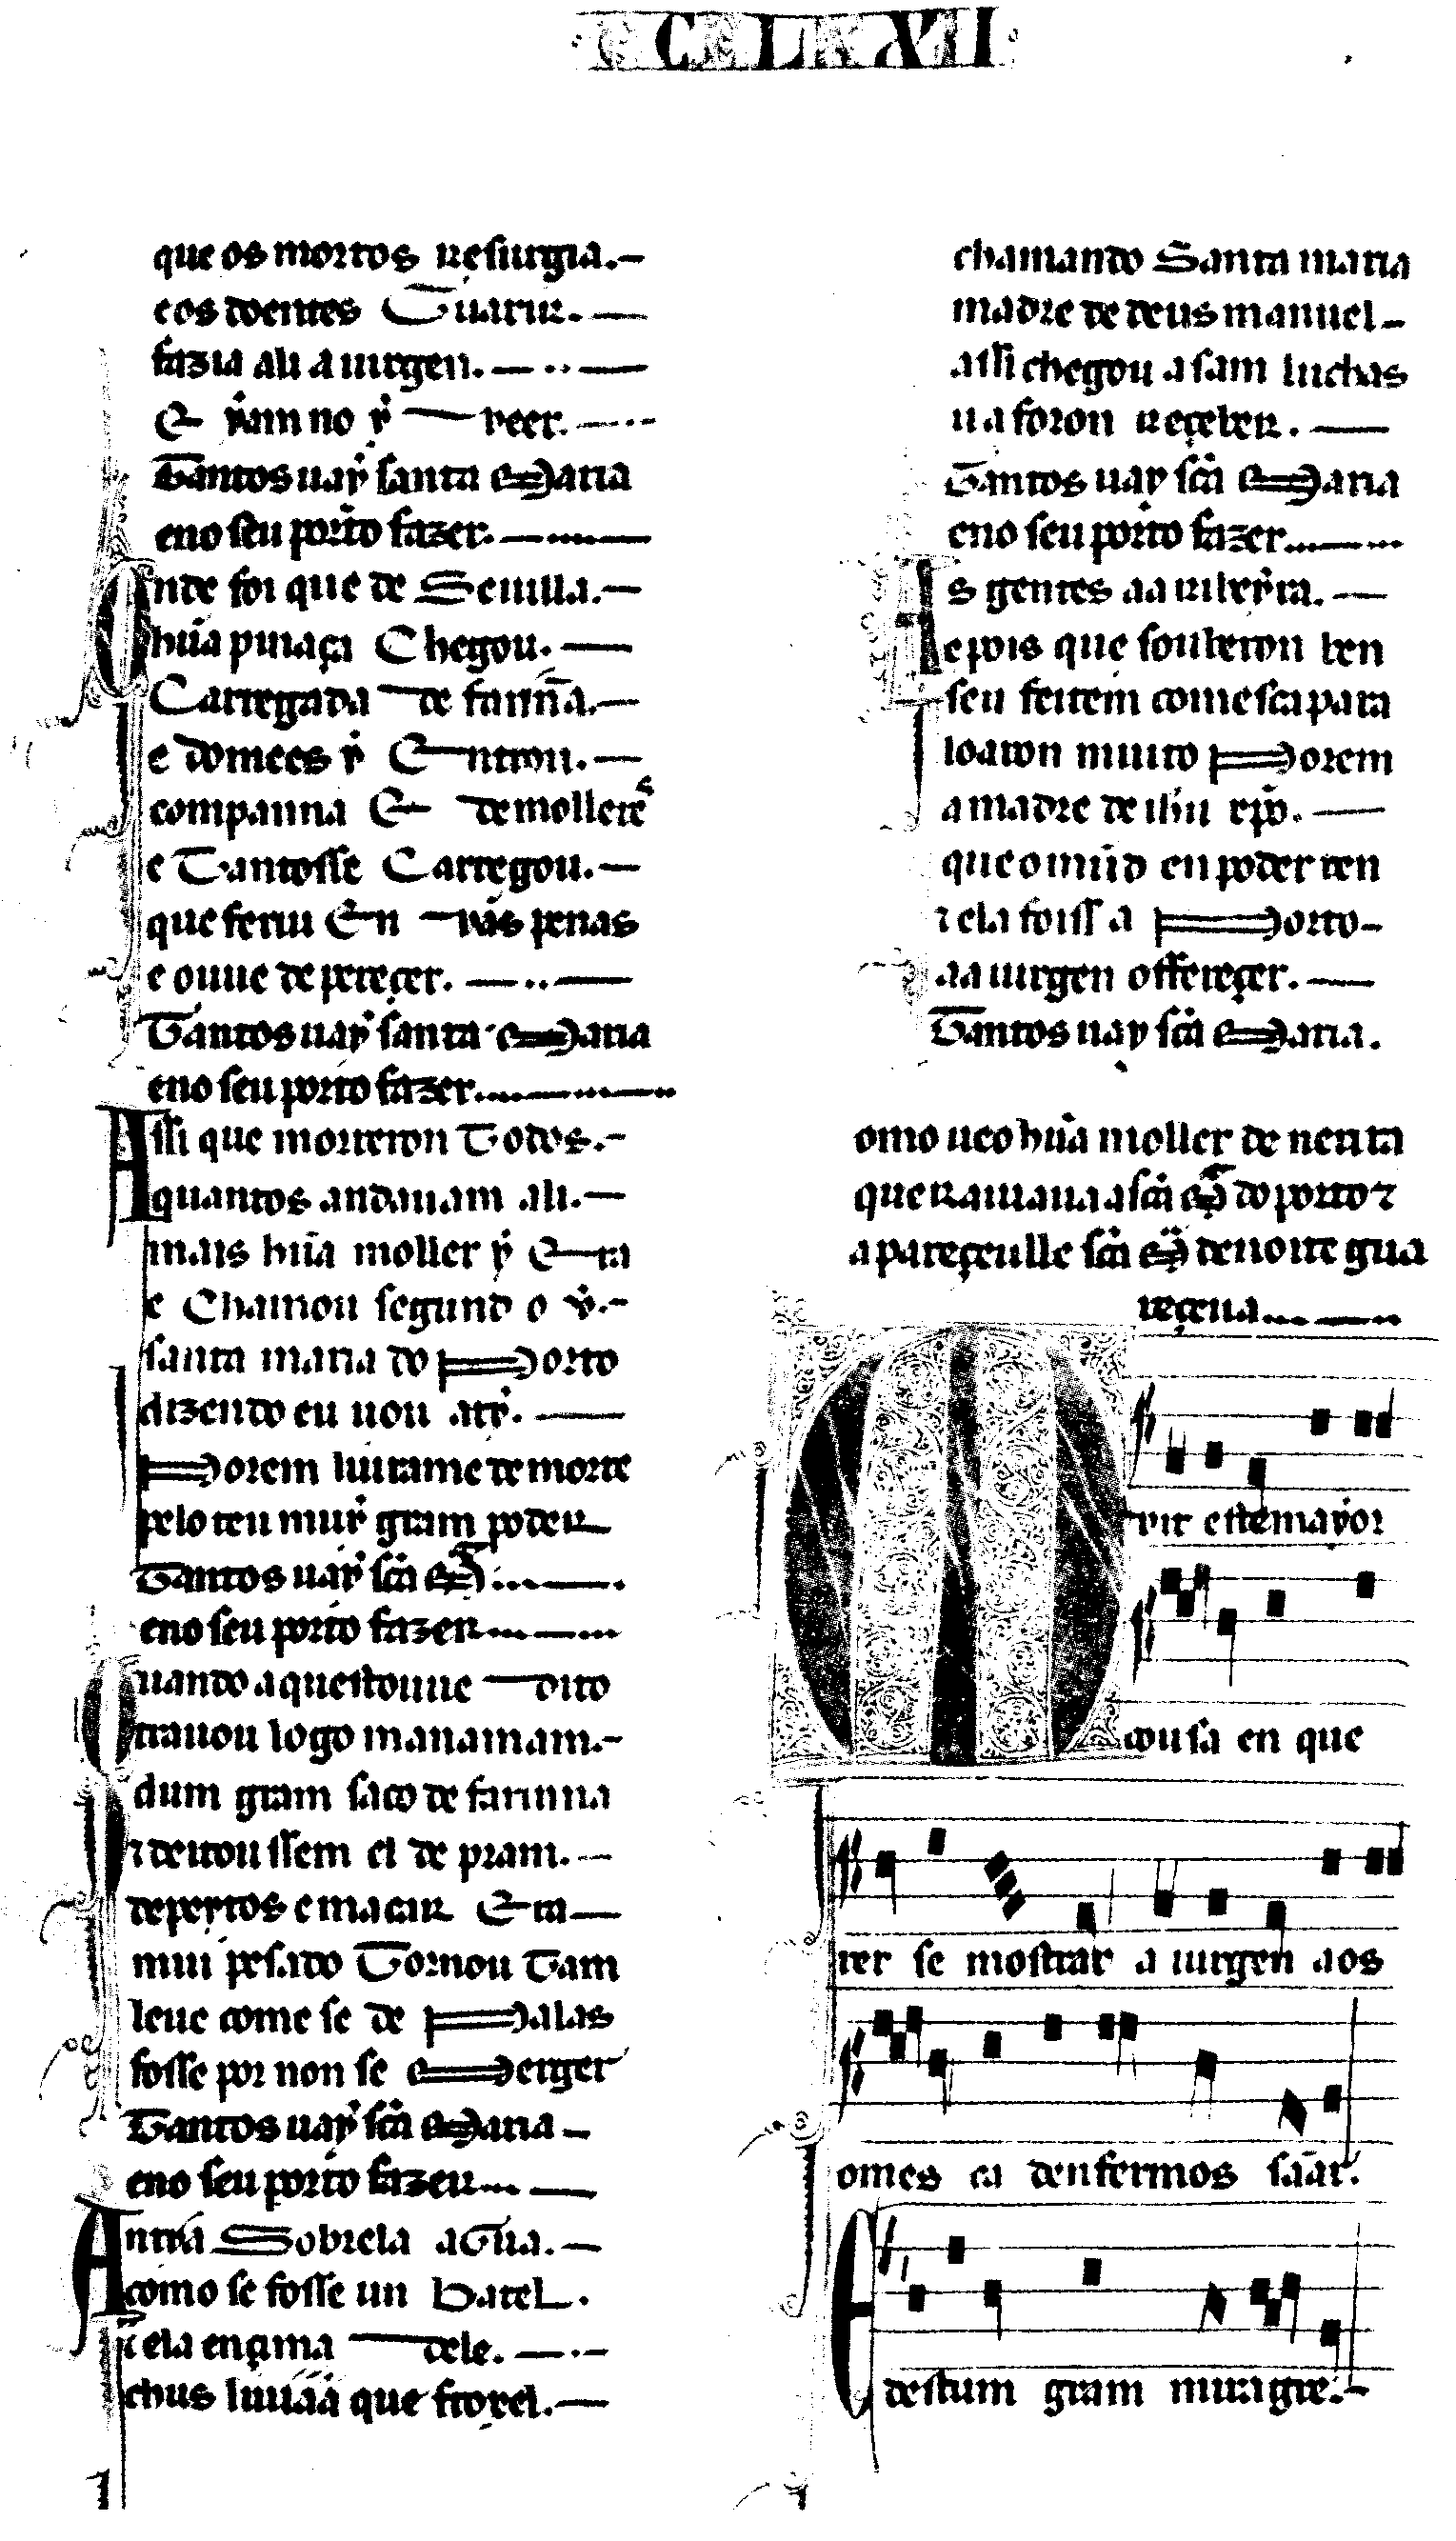 CCLXXII
que os mortos resurgia.
e os doentes Guarir.
fazia ali a uirgen.
E ẏam no ẏ veer.
Tantos uaẏ santa Maria
eno seu porto fazer.
Onde foi que de Seuilla.
hũa pinaça Chegou.
Carregada de farinna.
e domees ẏ Entrou.
companna E de molleres
e Tantosse Carregou.
que feriu En vãs penas
e ouue de pereçer.
Tantos uaẏ santa Maria
eno seu porto fazer.
Assi que morreron Todos.
quantos andauam ali.
mais hũa moller ẏ Era
e Chamou segund o ẏ.
santa maria do Porto
dizendo eu uou atẏ.
Porem liurame de morte
pelo teu muẏ gram poder
Tantos uaẏ sc̃a M̃a
eno seu porto fazer
Quando aquesto uue dito
trauou logo manamam.
dum gram saco de farinna
⁊ deitou issem el de pram.
depeytos e macar Era
mui pesado Tornou Tam
leue come se de Palas
fosse por non se Merger
Tantos uaẏ sc̃a Maria
eno seu porto fazer
Antr̃a Sobrela aGua.
como se fosse un Batel.
⁊ ela ençima dele.
chus liuiãã que froxel.
chamando Santa maria
madre de deus manuel
assi chegou a sam luchas
u a foron reçeber.
Tantos uay sc̃a Maria
eno seu porto fazer
As gentes aa ribeẏra.
depois que souberon ben
seu feitem comescapara
loaron muito Porem
a madre de ih̃u xp̃o.
que o mũd en poder ten
⁊ ela foiss a Porto
aa uirgen offereçer.
Tantos uay sc̃a Maria.
omo ueo hũa moller de nenta
que rauiaua a sc̃a M̃a do porto ⁊
apareçeulle sc̃a M̃a de noite gua
reçeua
Mvit estemaẏor
cousa en que
rer se mostrar a uirgen aos
omes ca denfermos sãar.
E destum gram miragre.